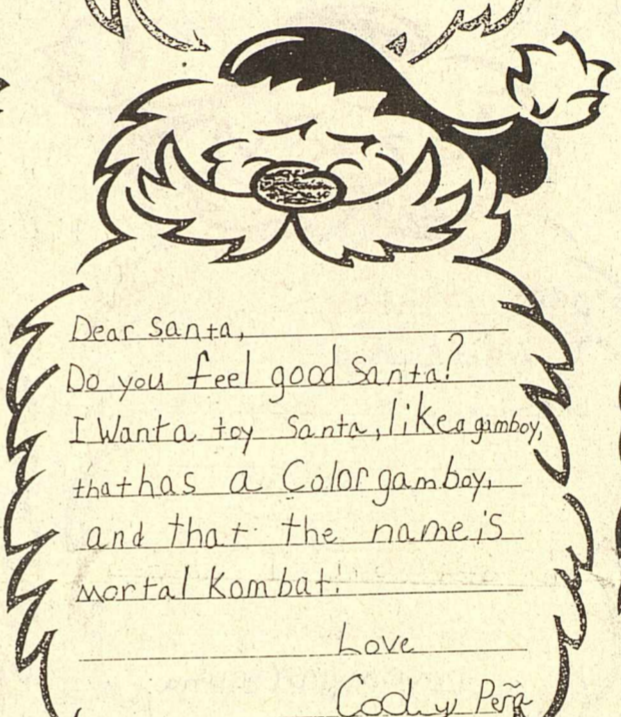 Dear Santa,
Do you feel good Santa?
I Want a toy Santa, like a gamboy,
that has a Color gamboy,
and that the name is
mortal Kombat!
Love
Cody Peña